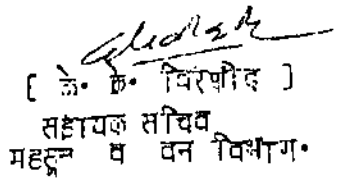 [ के. के. चिरपीद ]
सहायक सचिव
महसूल व वन विभाग.